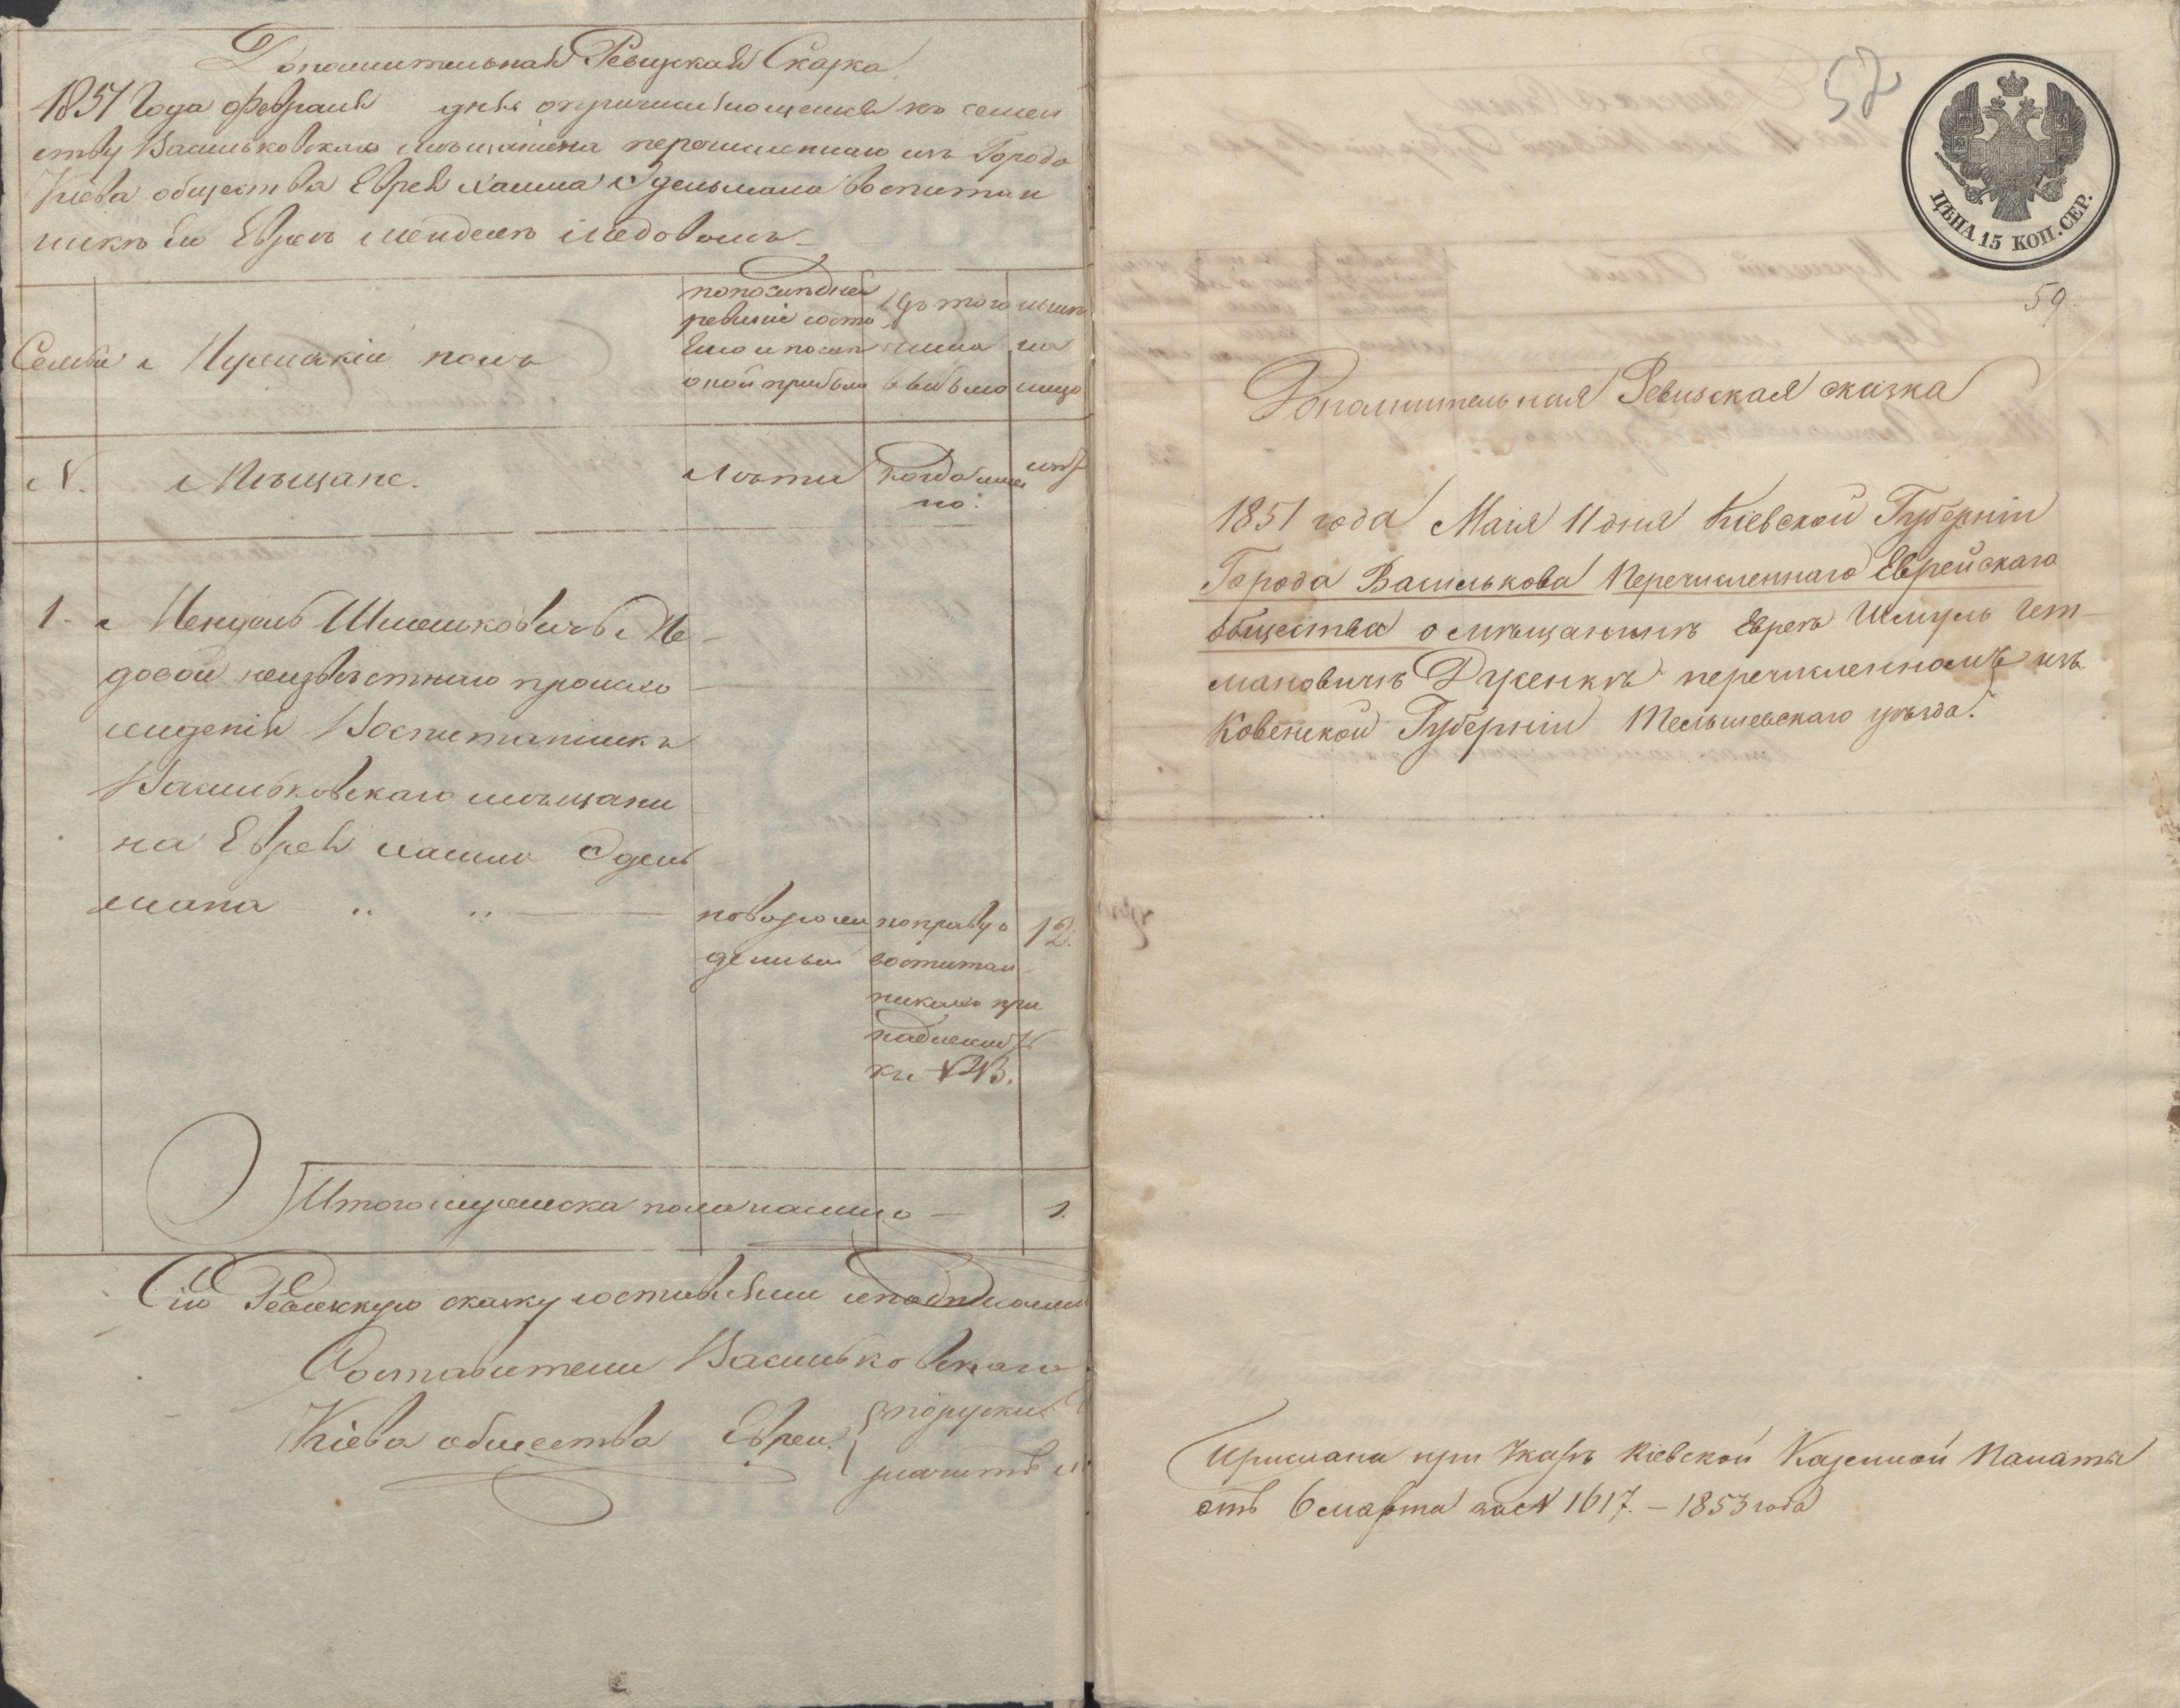 Дополнительная Ревизкая Сказка
1851 Года февраля дня о причисляющемся къ семей
ству Васильковскаго мѣщанина перечисленнаго изъ Города
Кіева общества Еврея Хаима Эдельмана воспитан
никѣ Евреѣ Менделѣ Медовомъ
Семьи Мужескій полъ
по последней ревизіи состо яло и после оной прибыло
Изъ того числа выбыло
ныне на лицо
N. Мѣщане. Лѣты Когда имен но: лѣтъ
1. Мендель Шмошковичъ Ме-
довой неизвѣстнаго происхо
жденія Воспитанникъ
Васильковскаго мѣщани
на Еврея Хаима Эдель
мана
новорож
денный
по праву
воспитан-
никовъ при
надлежитъ
къ N
12.
Итого мужеска пола налицо — 1.
Сію Ревизскую сказку составляли и подписали
Составители Васильковскаго
Кіева общества Евреи
значитъ
52
ЦѢНА 15 КОП. СЕР.
59.
Дополнительная Ревизская сказка
1851 года Маія 11 дня Кіевской Губерніи
Города Василькова Перечисленнаго Еврейскаго
общества о мѣщанинѣ Евреѣ Шмуль Гет-
мановичѣ Дуженкѣ перечисленномъ изъ
Ковенской Губерніи Тельшевскаго уѣзда.
Прислана при Указѣ Кіевской Казенной Палаты
отъ 6 марта за N 1617. — 1853 года